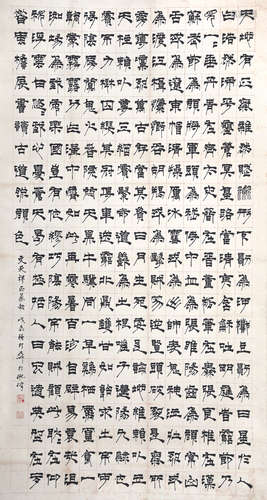 天地有正氣雜然賦流形下則為河嶽上則為日星於人
曰浩然沛乎塞蒼冥皇路當清夷含和吐明庭時窮節乃
見一一垂丹青在齊太史簡在晉董狐筆在秦張良椎在漢
蘇武節為嚴將軍頭為嵇侍中血為張睢陽齒為顏常山
舌或為遼東帽清操厲冰雪或為出師表鬼神泣壯烈或
為渡江楫慷慨吞胡羯或為擊賊笏逆豎頭破裂是氣所
磅礡凜烈萬古存當其貫日月生死安足論地維賴以立
天柱賴以尊三綱實繫命道義為之根嗟予遘陽九隸也
實不力楚囚纓其冠傳車送窮北鼎鑊甘如飴求之不可
得陰房闃鬼火春院閟天黑牛驥同一皂雞棲鳳凰食一
朝蒙霧露分作溝中瘠如此再寒暑百沴自辟易哀哉沮
洳場為我安樂國豈有他繆巧陰陽不能賊顧此耿耿在仰
視浮雲白悠悠我心悲蒼天曷有極哲人日已遠典刑在
夙昔風簷展書讀古道照顏色
文天祥正氣歌